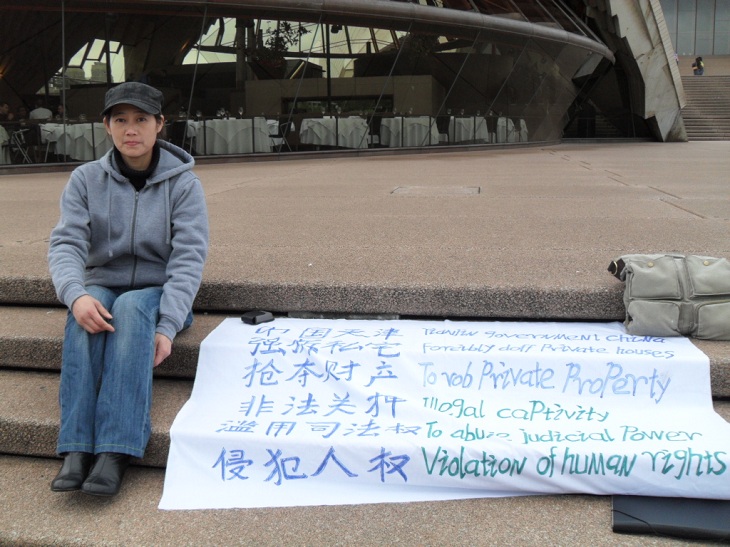 中国天津 Tianjin government china
强拆私宅 Forcibly doff Private houses
抢夺财产 To rob Private ProPerty
非法关押 Illegal caPtivity
滥用司法权 To abuse judicial Power
侵犯人权 Violation of human rights